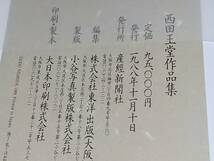 西田王堂作品集
定価 九五、〇〇〇円
発行 一九八八年十一月十日
発行所 産經新聞社
編集 株式会社東洋出版(大阪
製版 小谷写真製版株式会社
印刷・製本 大日本印刷株式会社